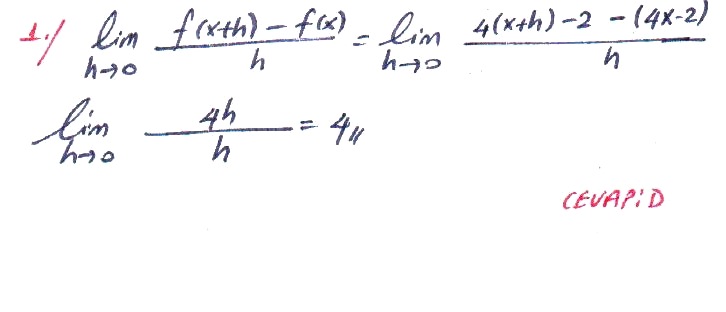 1-) lim h→0 f(x+h) - f(x) / h = lim h→0 4(x+h) - 2 - (4x-2) / h
lim h→0 4h / h = 4//
CEVAP: D